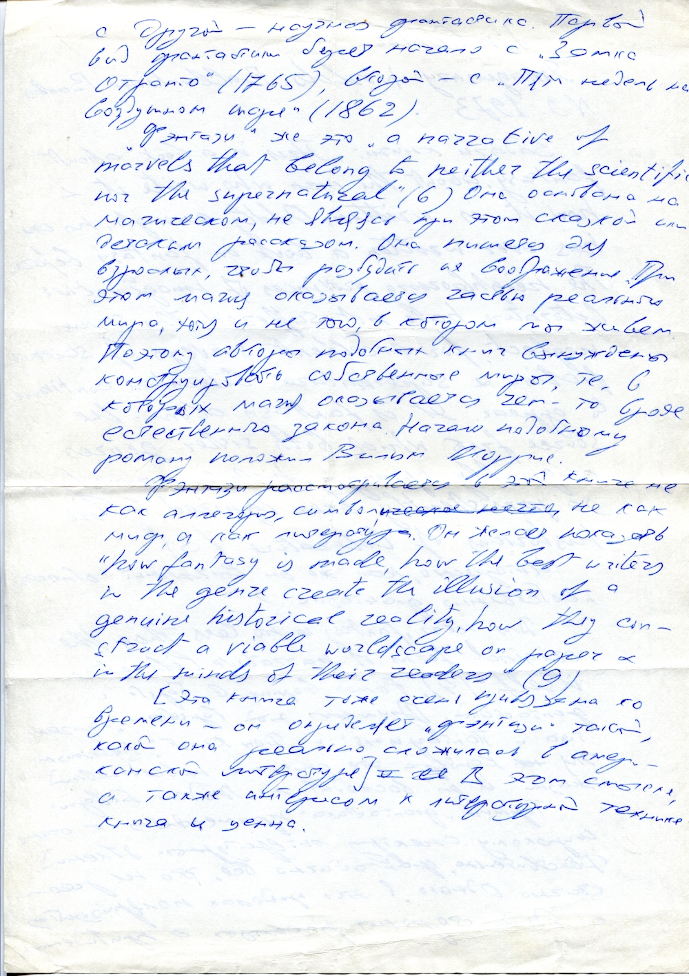 с другой – научная фантастика. Первой
вид фантастики берет начало с „Замка
Отранто" (1765), второй – с „Пяти недель на
воздушном шаре" (1862).
„Фэнтази" же это „a narrative of
marvels that belong to neither the scientific
nor the supernatural" (6) Она основана на
магическом, не являясь при этом сказкой или
детским рассказом. Она пишется для
взрослых, чтобы разбудить их воображение. При
этом магия оказывается частью реального
мира, хотя и не того, в котором мы живем.
Поэтому авторы подобных книг вынуждены
конструировать собственные миры, те, в
которых магия оказывается чем-то вроде
естественного закона. Начало подобному
роману положил Вильям Моррис.
Фэнтази рассматривается в этой книге не
как аллегория, символическое нечто, не как
миф, а как литература. Он желает показать
"how fantasy is made, how the best writers
in the genre create the illusion of a
genuine historical reality, how they con-
struct a viable worldscape on paper &
in the minds of their readers (9)
[Эта книга тоже очень привязана ко
времени – он определяет „фэнтази" такой,
какой она реально сложилась в амери-
канской литературе] В этом смысле,
а также интересом к литературной технике
книга и ценна.